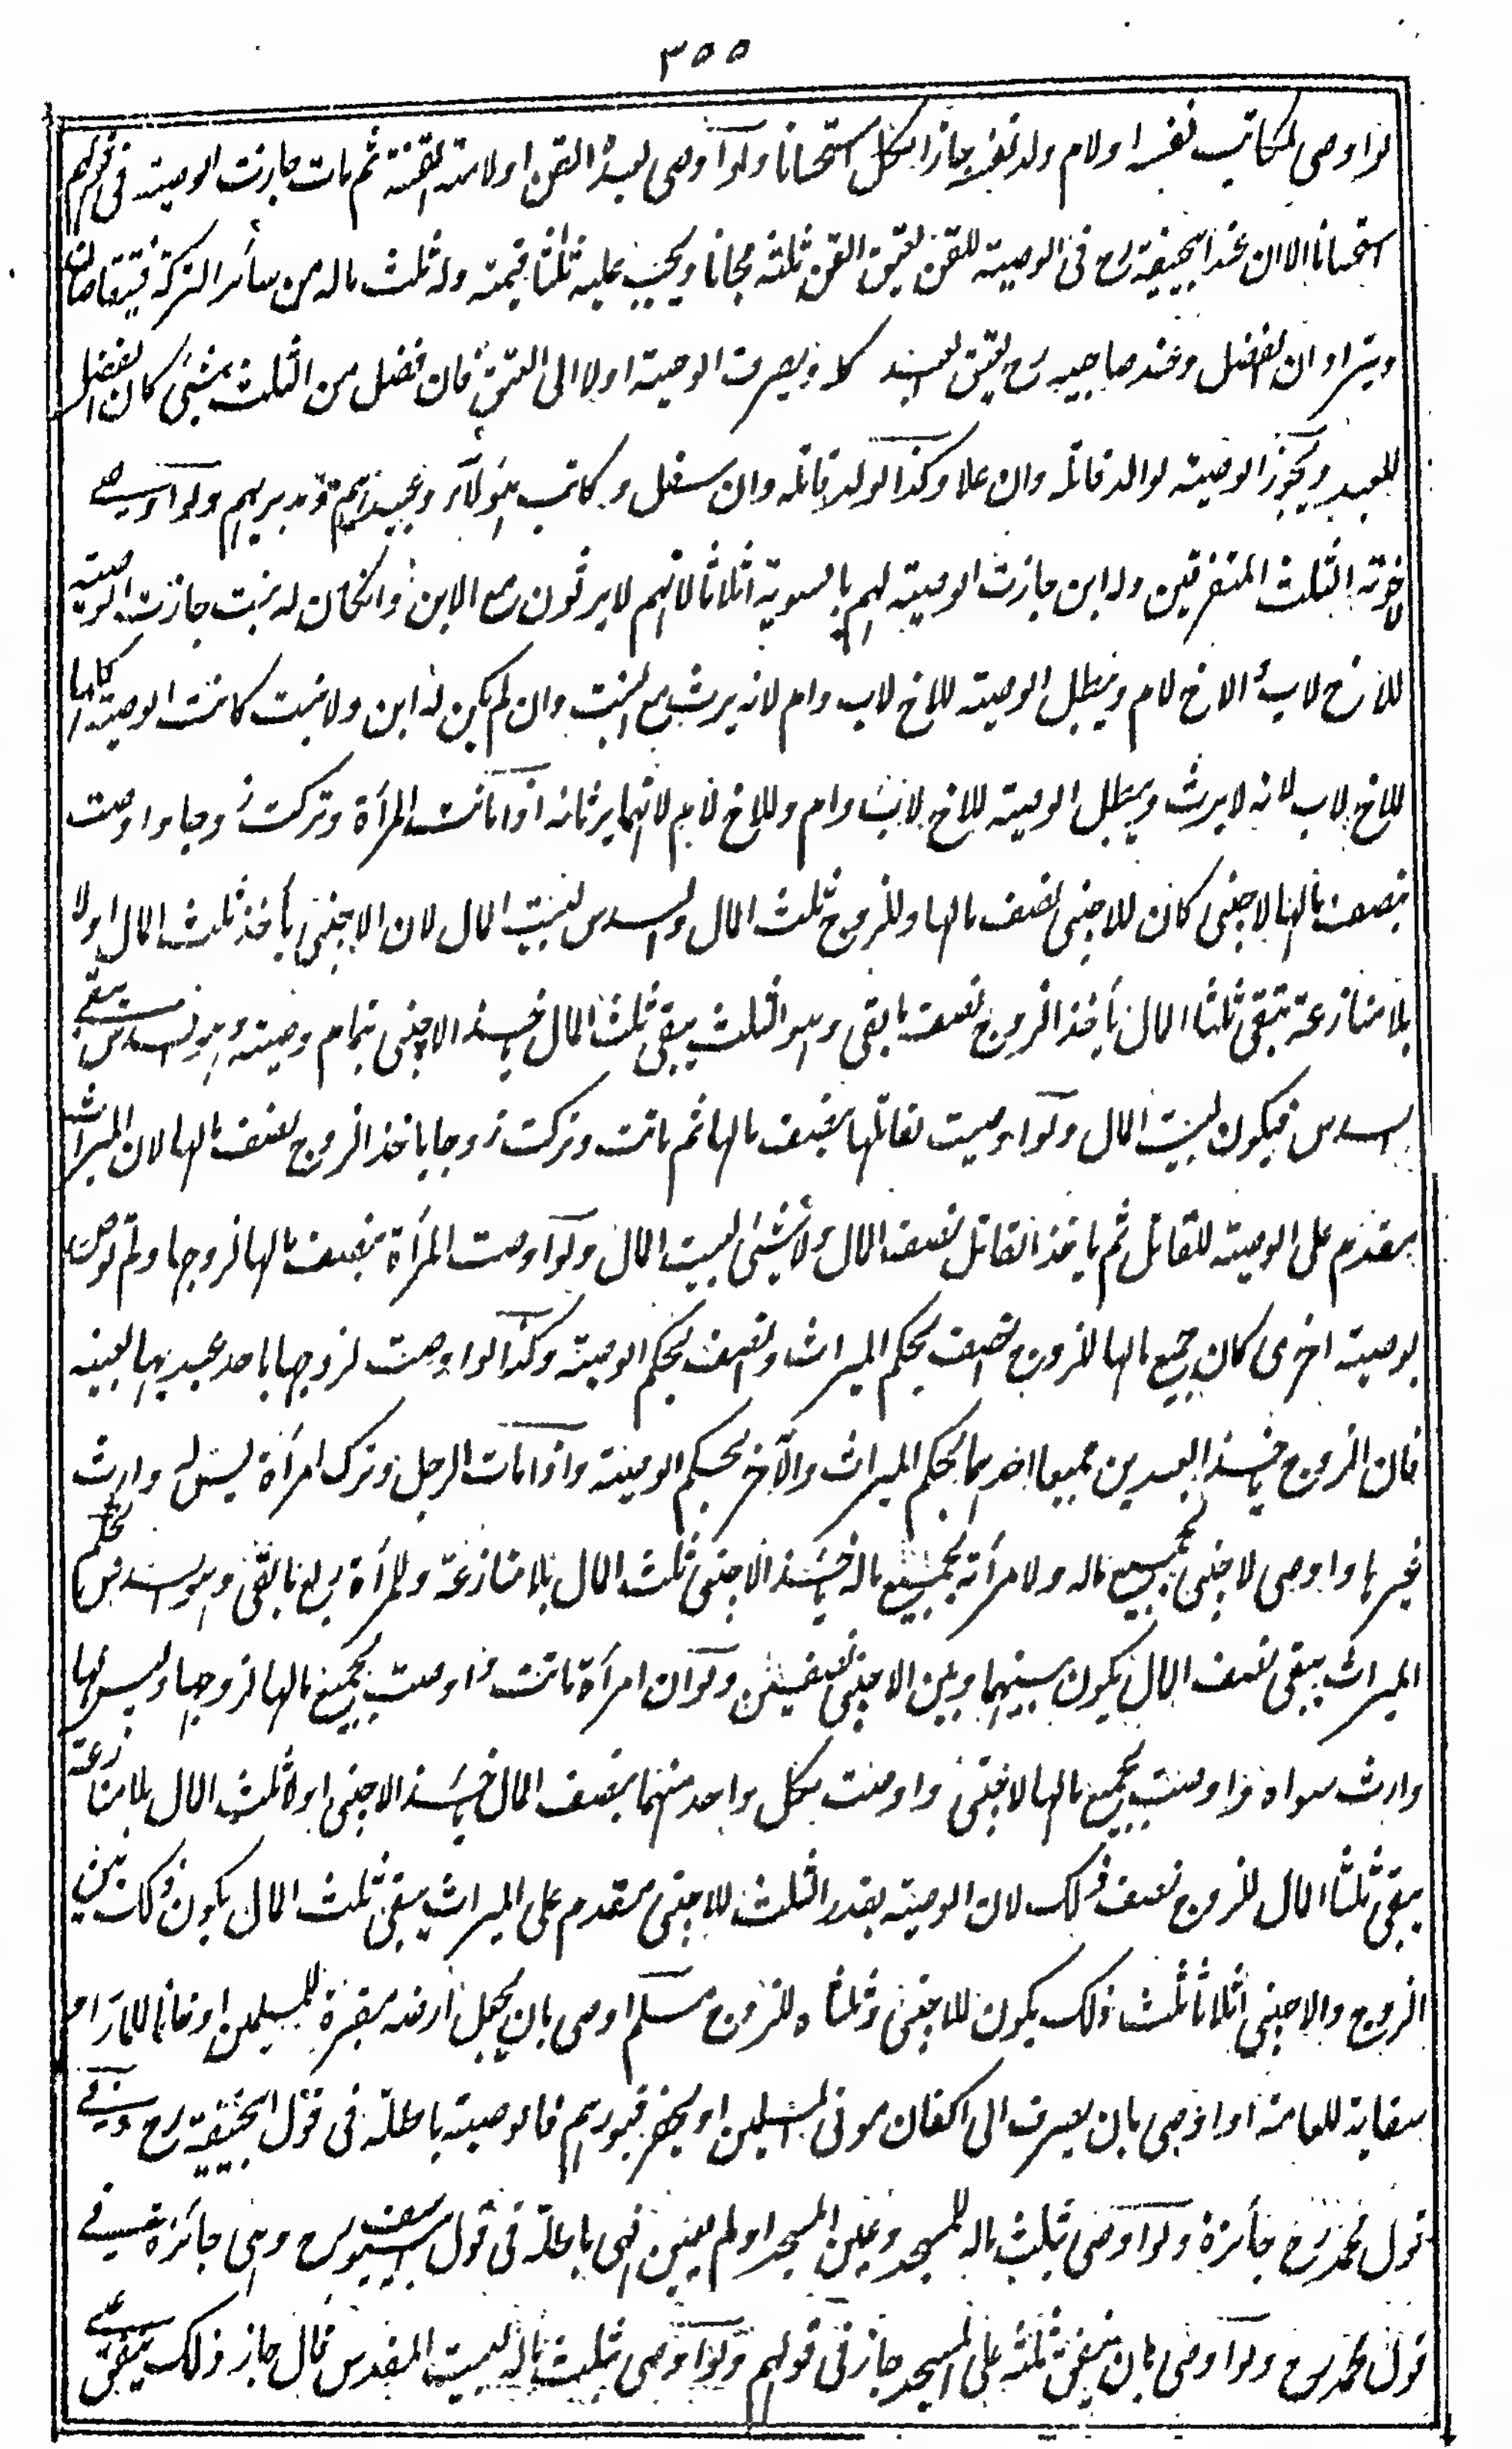 ٣٥٥
لو اوصى لمكاتب نفسه او لام ولد نفسه جاز الكل استحسانا ولو اوصى لعبده القن او لامته القنة ثم مات جازت الوصية فى قولهم
استحسانا الا ان عند ابيحنيفة رح فى الوصية للقن يعتق القن ثلثه مجانا ويجب عليه ثلثا قيمته وله ثلث ماله من سائر التركة فيتقاصان
ويترادان الفضل وعند صاحبيه رح يعتق العبد كله ويصرف الوصية اولا الى العتق فان فضل من الثلث شئ كان الفضل
للعبد ويجوز الوصية لوالد قاتله وان علا وكذا لولد قاتله وان سفل ومكاتب هؤلاء وعبيدهم ومدبريهم ولو اوصى
لاخوته الثلث المتفرقين وله ابن جازت الوصية لهم بالسوية اثلاثا لانهم لا يرثون مع الابن وانكان له بنت جازت الوصية
للاخ لاب والاخ لام ويبطل الوصية للاخ لاب وام لانه يرث مع البنت وان لم يكن له ابن ولا بنت كانت الوصية كلها
للاخ لاب لانه لا يرث ويبطل الوصية للاخ لاب وام وللاخ لام لانهما يرثانه اذا ماتت المرأة وتركت زوجا واوصت
بنصف مالها لاجنبى كان للاجنبى نصف مالها وللزوج ثلث المال والسدس لبيت المال لان الاجنبى يأخذ ثلث المال اولا
بلا منازعة تبقى ثلثا المال يأخذ الزوج نصف ما بقى وهو الثلث يبقى ثلث المال يأخذ الاجنبى تمام وصيته وهو السدس يبقى
السدس فيكون لبيت المال ولو اوصيت لقاتلها بنصف مالها ثم ماتت وتركت زوجا ياخذ الزوج نصف مالها لان الميراث
مقدم على الوصية للقاتل ثم ياخذ القاتل نصف المال ولا شئ لبيت المال ولو اوصت المرأة بنصف مالها لزوجها ولم توص
بوصية اخرى كان جميع مالها للزوج نصف بحكم الميراث ونصف بحكم الوصية وكذا لو اوصت لزوجها باحد عبديها بعينه
فان الزوج ياخذ العبدين جميعا احدهما بحكم الميراث والآخر بحكم الوصية واذا مات الرجل وترك امرأة ليس له وارث
غيرها واوصى لاجنبى بجميع ماله ولامرأته بجميع ماله يأخذ الاجنبى ثلث المال بلا منازعة وللمرأة ربع ما بقى وهو السدس بحكم
الميراث يبقى نصف المال يكون بينهما وبين الاجنبى نصفين ولو ان امرأة ماتت واوصت بجميع مالها لزوجها وليس لها
وارث سواه واوصت بجميع مالها لاجنبى واوصت بكل واحد منهما بنصف المال ياخذ الاجنبى اولا ثلث المال بلا منازعة
يبقى ثلثا المال للزوج نصف ذلك لان الوصية بقدر الثلث للاجنبى مقدم على الميراث يبقى ثلث المال يكون ذلك بين
الزوج والاجنبى اثلاثا ثلث ذلك يكون للاجنبى وثلثاه للزوج مسلم اوصى بان يجعل ارضه مقبرة للمسلمين او خانا للمارة او
سقاية للعامة او اوصى بان يصرف الى اكفان موتى المسلمين او يحفر قبورهم فالوصية باطلة فى قول ابيحنيفة رح وفى
قول محمد رح جائزة ولو اوصى بثلث ماله للمسجد وعين المسجد او لم يعين فهى باطلة فى قول ابييوسف رح وهى جائزة فى
قول محمد رح ولو اوصى بان ينفق ثلثه على المسجد جاز فى قولهم ولو اوصى بثلث ماله لبيت المقدس قال جاز ذلك ينفق على